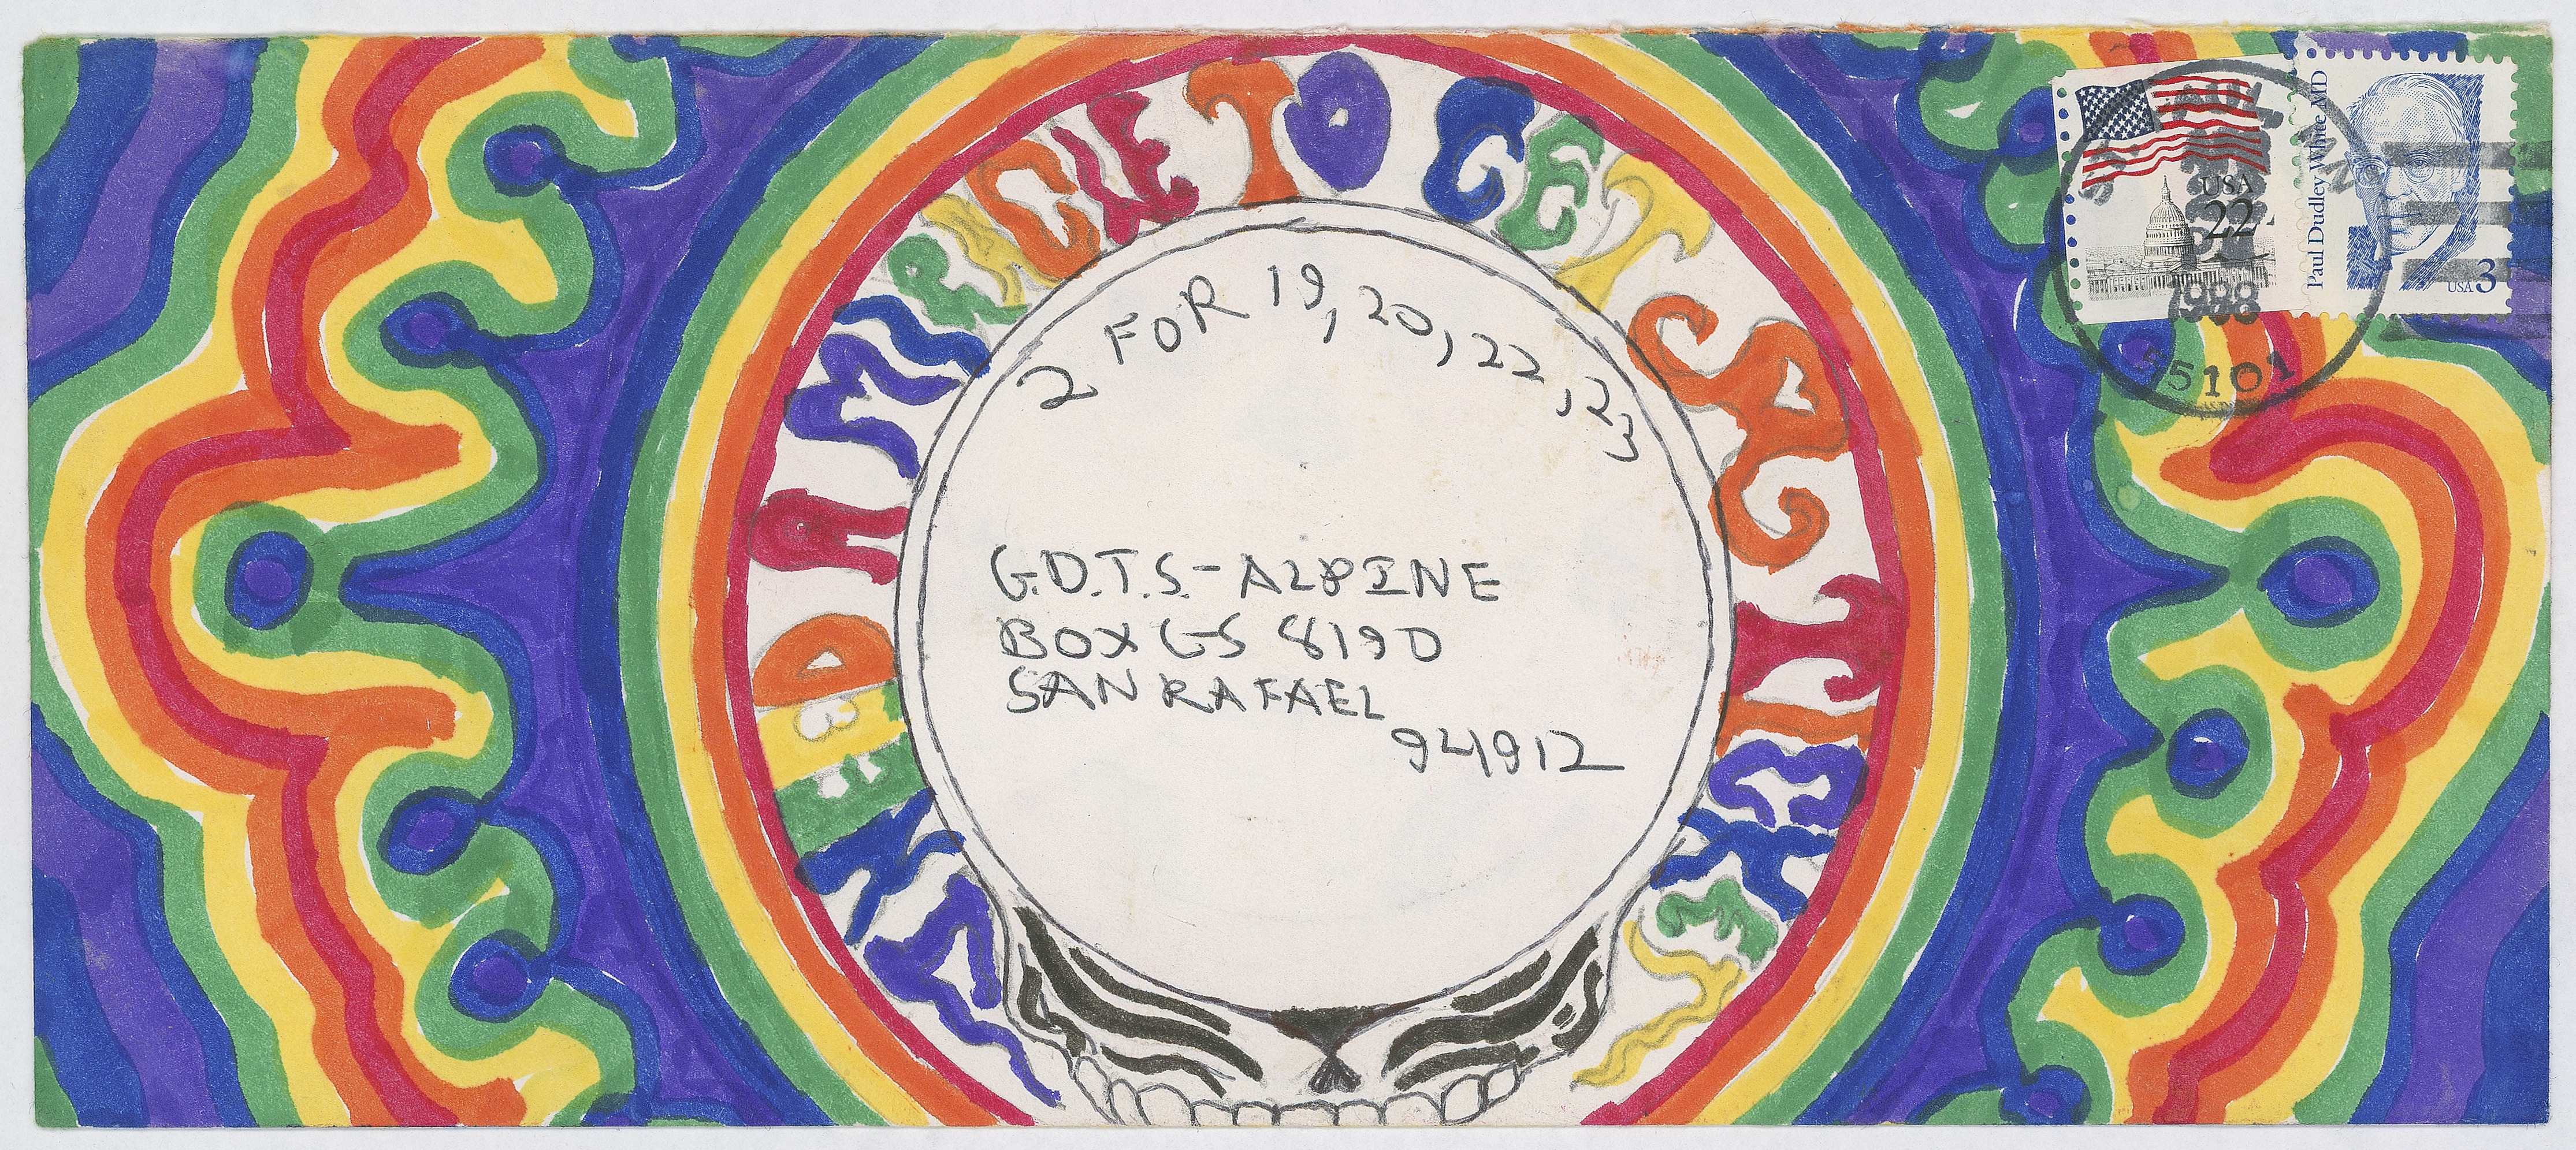 I NEED A MIRACLE TO GET A TICKET
2 FOR 19, 20, 22, 23
G.D.T.S-ALPINE
BOX GS 8190
SAN RAFAEL
94912
USA
22
Paul Dudley White MD
USA 3
1988
55101